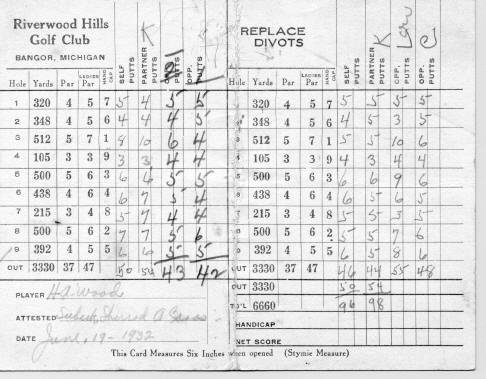 Riverwood Hills
Golf Club
BANGOR, MICHIGAN
K
SELF PUTTS PARTNER PUTTS OPP. PUTTS OPP. PUTTS
Hole Yards Par LADIES Par HANDICAP
1 320 4 5 7 5 4 5 5
2 348 4 5 6 4 4 4 5
3 512 5 7 1 8 10 6 4
4 105 3 3 9 3 3 4 4
5 500 5 6 3 6 6 5 5
6 438 4 6 4 6 7 5 4
7 215 3 4 8 5 7 4 4
8 500 5 6 2 7 7 5 6
9 392 4 5 5 6 6 5 5
OUT 3330 37 47 50 54 43 42
PLAYER H.A. Wood
ATTESTED
DATE June, 19-1932
This Card Measures Six Inches when opened (Stymie Measure)
REPLACE
DIVOTS
K C
SELF PUTTS PARTNER PUTTS OPP. PUTTS OPP. PUTTS
Yards Par LADIES Par HANDICAP
320 4 5 7 5 5 5 5
348 4 5 6 4 5 3 5
512 5 7 1 5 5 10 6
105 3 3 9 4 3 4 4
500 5 6 3 6 6 9 6
438 4 6 4 6 5 6 5
215 3 4 8 5 5 3 5
500 5 6 2 5 5 7 6
392 4 5 5 6 5 8 6
OUT 3330 37 47 46 44 55 48
OUT 3330 50 54
TO'L 6660 96 98
HANDICAP
NET SCORE